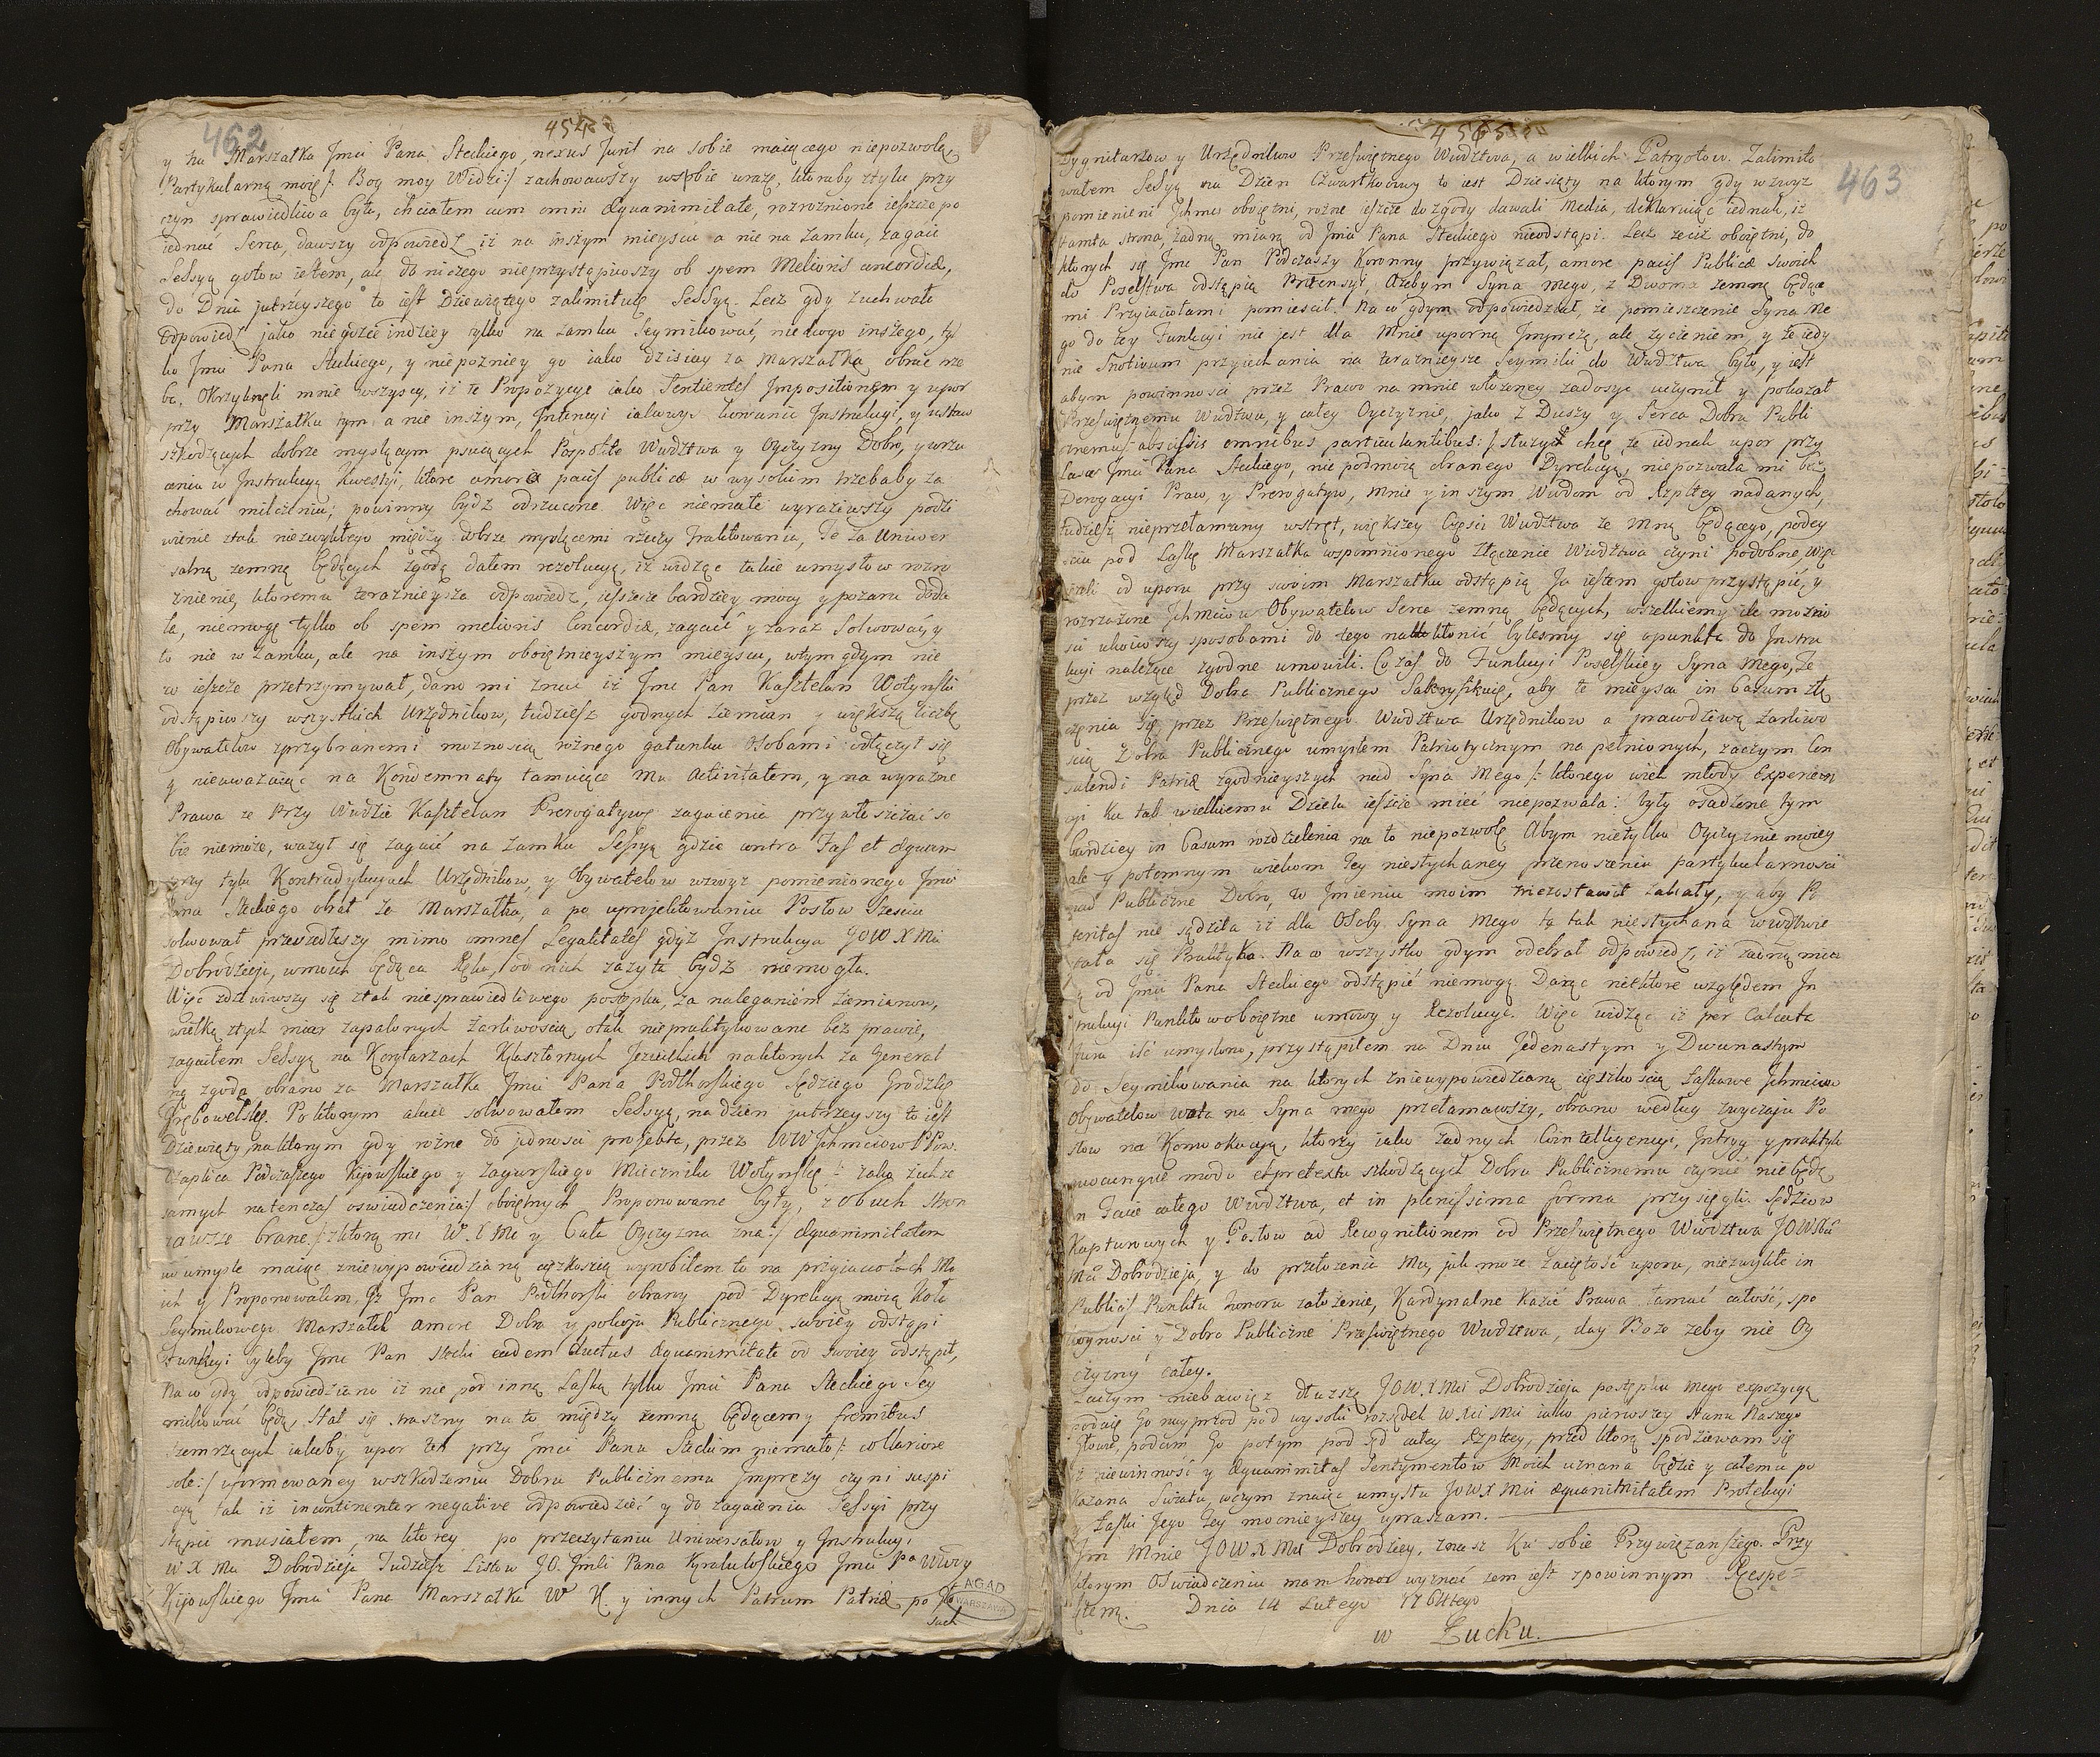 462
454
y na Marszałka Jmci Pana Steckiego, nexus Juris na sobie maiącego niepozwolę,
Partykularną moię /: Bog moy Widzi :/ zachowawszy wsobie urazę, ktoraby ztylu przy
czyn sprawiedliwa była, chciałem cum omni æquanimitate, rozroznione ieszcze po
iednać Serca, dawszy odpowiedz iż na inszym mieyscu a nie na Zamku, zagaic
Sessyą gotow iestem, ale do niczego nieprzystąpiwszy ob spem Melioris concordiæ,
do Dnia jutrzeyszego to iest Dziewiątego zalimituię Sessyą. Lecz gdy zuchwałe
odpowiedz jako niegdzie indziey tylko na zamku Seymikować, nie kogo inszego, tyl
ko Jmci Pana Steckiego, y niepozniey go iako dzisiay za Marszałka obrać trze
ba. Okrzyknęli mnie wszyscy, iż te Propozycye iako Sentientes Impositionem y upor
przy Marszałku tym a nie inszym, Intencyi iakowys knowania Instrukcyi, y ustaw
szkodzących dobrze myslącym psuiących Pospolite Wudztwa y Oyczyzny Dobro, y wrzu
cenia w Instrukcyą Kwestyi, ktore amore pacis publicæ w wysokim trzebaby za
chować milczeniu, powinny bydz odrzucone. Więc niemałe wyraziwszy podzi
wienie ztak niezwykłego między dobrze myslącemi rzeczy traktowania, Te za Uniwer
salną zemną będących zgodą dałem rezolucyą, iż widząc takie umysłow rozro
znienie, ktoremu teraznieysza odpowiedz, ieszcze bardziey mocy y pozaru doda
ła, niemogę tylko ob spem melioris Concordiæ, zagaić y zaraz Solwować, y
to nie w Zamku, ale na inszym oboiętnieyszym mieyscu, wtym gdym nie
co ieszcze przetrzymywał, dano mi znac iż Jmc Pan Kasztelan Wołynski
odstąpiwszy wszystkich Urzędnikow, tudziesz godnych Ziemian y większą liczbę
Obywatelow zprzybranemi moznoscią roznego gatunku Osobami odłączył się
y nieuwazaiąc na Kondemnaty tamuiące Mu Activitatem, y na wyrazne
Prawa ze Przy Wudzie Kasztelan Prerogatywę zagaienia przywłaszczać so
bie niemoże, wazył się zagaić na Zamku Sessyą gdzie contra Fas et æquum
przy tylu Kontradykcyach Urzędnikow, y Obywatelow wzwyz pomienionego Jmci
Pana Steckiego obrał za Marszałka, a po uprojektowaniu Posłow Szesciu
solwował przeszedłszy mimo omnes Legalitates gdyż Instrukcya JOWXMci
Dobrodzieja, wmoich będąca Ręku, od nich zazyta bydz niemogła.
Więc zdziwiwszy się ztak niesprawiedliwego postępku, za naleganiem Ziemianow,
wielką ztych miar zapalonych zarliwoscią, otak niepraktykowane bez prawie,
zagaiłem Sessyą na Korytarzach Klasztornych Jezuickich naktorych za General
ną zgodą obrano za Marszałka Jmci Pana Podhorskiego Sędziego Grodzkę
Trębowelskę. Poktorym akcie solwowałem Sessyą, na dzien jutrzeyszy to iest
Dziewięty, naktorym gdy rozne do jednosci projekta, przez WWJchmciow PPow.
Czaplica Podczaszego Kijowskiego y Zagurskiego Miecznika Wołynskę /: zaką zich ze
samych natenczas oswiadczenia :/ oboiętnych Proponowane były, z Obuch stron
zawsze brane /: zktorą mi W.X Mc y Cała Oyczyzna zna :/ æquanimitatem
w umysle maiąc zniewypowiedzianą cięzkoscią wyrobiłem to na przyiaciołach Mo
ich y Proponowałem, iż Jmc Pan Podhorski obrany pod Dyrekcyą moią Koła
Seymikowego Marszałek amore Dobra y pokoju Publicznego swoiey odstąpi
Funkcyi byleby Jmc Pan Stecki eadem ductus æquanimitate od swoiey odstąpił,
Na co gdy odpowiedziano iż nie pod inną Laską tylko Jmci Pana Steckiego Sey
mikować będą, stał się straszny na to między zemną będącemy fremitus
szemrzących iakoby upor ten przy Jmci Panu Steckim niemało /: collusione
sole :/ uformowaney wszkodzeniu Dobru Publicznemu Imprezy czyni suspi
cyą tak iż incontinenter negative odpowiedzieć y do zagaienia Sessyi przy
stąpić musiałem, na ktorey po przeczytaniu Uniwersałow y Instrukcyi
WXMci Dobrodzieja Tudziesz Listow JO. Jmsci Pana Krakowskiego Jmci Pa Wdy
Kijowskiego Jmci Pana Marszałka W K. y innych Patrum Patriæ po
such
AGAD
WARSZAWA
4565
463
Dygnitarzow y Urzędnikow Przeswiętnego Wudztwa, a wielkich Patryotow. Zalimito
wałem Sessyą na Dzien Czwartkowy to iest Dziesięty na ktorym gdy wzwyz
pomienieni Jchmc oboiętni, rozne ieszcze do zgody dawali Media, deklaruiąc iednak, iz
tamta strona, zadną miarą od Jmci Pana Steckiego nieodstąpi. Lecz zeciż oboiętni, do
ktorych się Jmc Pan Podczaszy Koronny przywiązał, amore pacis Publicæ swoich
do Poselstwa odstąpią Pretensyi, Ażebym Syna mego, z Dwoma zemną będące
mi Przyiaciołami pomiescił. Na co gdym odpowiedział, że pomieszczenie Syna Me
go do tey Funkcyi nie jest dla Mnie uporną Imprezą, ale zyczeniem, y że iedy
nie Motivum przyiechania na teraznieysze Seymiki do Wudztwa było, y iest
abym powinnosci przez Prawo na mnie włozoney zadosyc uczynił y pokazał
Przeswiętnemu Wudztwu, y całey Oyczyznie, jako z Duszy y Serca Dobru Publi
cznemu /: abscissis omnibus particularitatibus :/ słuzyć chcę, że iednak upor przy
Lasce Jmci Pana Steckiego, nie podmoią obranego Dyrekcyą, niepozwala mi bez
Derogacyi Praw, y Prerogatyw, mnie y inszym Wudom od Rzpltey nadanych,
tudziesz nieprzełamany wstręt, większey Części Wudztwa ze mną będącego, podey
sciu pod Laskę Marszałka wspomnionego złączenie Wudztwa czyni podobne, więc
ieżeli od uporu przy swoim Marszałku odstąpią Ja iestem gotow przystąpić, y
rozrażone Jchmciow Obywatelow Serca zemną będących, wszelkiemy ile mozno
sci ukoiwszy sposobami do tego nakłonić bylesmy się opunkta do Instru
kcyi należące zgodne umowili. Co zas do Funkcyi Poselskiey Syna mego, Te
przez wzgląd Dobra Publicznego Sakryfikuię, aby te mieysca in Casum złą
czenia się przez Przeswiętnego Wudztwa Urzędnikow a prawdziwą zarliwo
scią Dobra Publicznego umysłem Patriotycznym napełnionych, zaczym Con
sulendi Patriæ zgodnieyszych nad Syna Mego /: ktorego wiek młody Experien
cyi ku tak wielkiemu Dziełu ieszcze mieć niepozwala :/ były osadzone, tym
bardziey in Casum rozdzielenia na to niepozwolę Abym nietylko Oyczyznie moiey
ale y potomnym wiekom tey niesłychaney przenoszenia partykularnosci
nad Publiczne Dobro, w Imieniu moim niezostawił zakały, y aby Po
steritas nie sądziła iż dla Osoby Syna Mego tą tak niesłychana wWdztwie
stała się Praktyka. Na co wszystko gdym odebrał odpowiedz, iż zadną mia
rą od Jmci Pana Steckiego odstąpić niemogą. Daiąc niektore względem In
strukcyi Punktow oboiętne umowy y Rezolucye. Więc widząc iż per Calcata
Jura iść umyslono, przystąpiłem na Dniu Jedenastym y Dwunastym
do Seymikowania na ktorych zniewypowiedzianą cięzkoscią Łaskawe Jchmciow
Obywatelow vota na Syna mego przełamawszy, obrano według zwyczaju Po
słow na Konwokacyą, ktorzy iako zadnych Cointelligencyi, Intryg y praktyk
quocunque modo et pretextu szkodzących Dobru Publicznemu czynić niebędę
in Facie całego Wudztwa, et in plenissima forma przysięgli. Sędziow
Kapturowych y Posłow ad Recognitionem od Przeswiętnego Wudztwa JOWXci
Mci Dobrodzieja, y do przełozenia Mu, jak może zaciętość uporu, niezwykłe in
Publicis Punktu honoru założenie, Kardynalne Kazić Prawa łamać całość, spo
koynosci y Dobro Publiczne Przeswiętnego Wudztwa, day Boze zeby nie Oy
czyzny całey.
Zaczym niebawiąc dłuzszą JOWXMci Dobrodzieja postępku mego expozycyą
podaię Go nayprzod pod wysoki rozsądek WXci Mci iako pierwszey Stanu Naszego
Głowie, podam Go potym pod sąd całey Rzpltey, przed ktorą spodziewam się
iż niewinność y Æquanimitas Sentymentow Moich uznana będzie y całemu po
kazana Swiatu, wczym znaiąc umysłu JOWXMci æquanimitatem Protekcyi
y Łaski Jego Jey mocnieyszey upraszam.
Im Mnie JOWXMci Dobrodziey, znasz Ku sobie Przywiązanszego. Przy
ktorym Oswiadczeniu mam honor wyznać zem iest zpowinnym Respe=
ktem. Dnia 14 Lutego 1764tego
w Łucku.